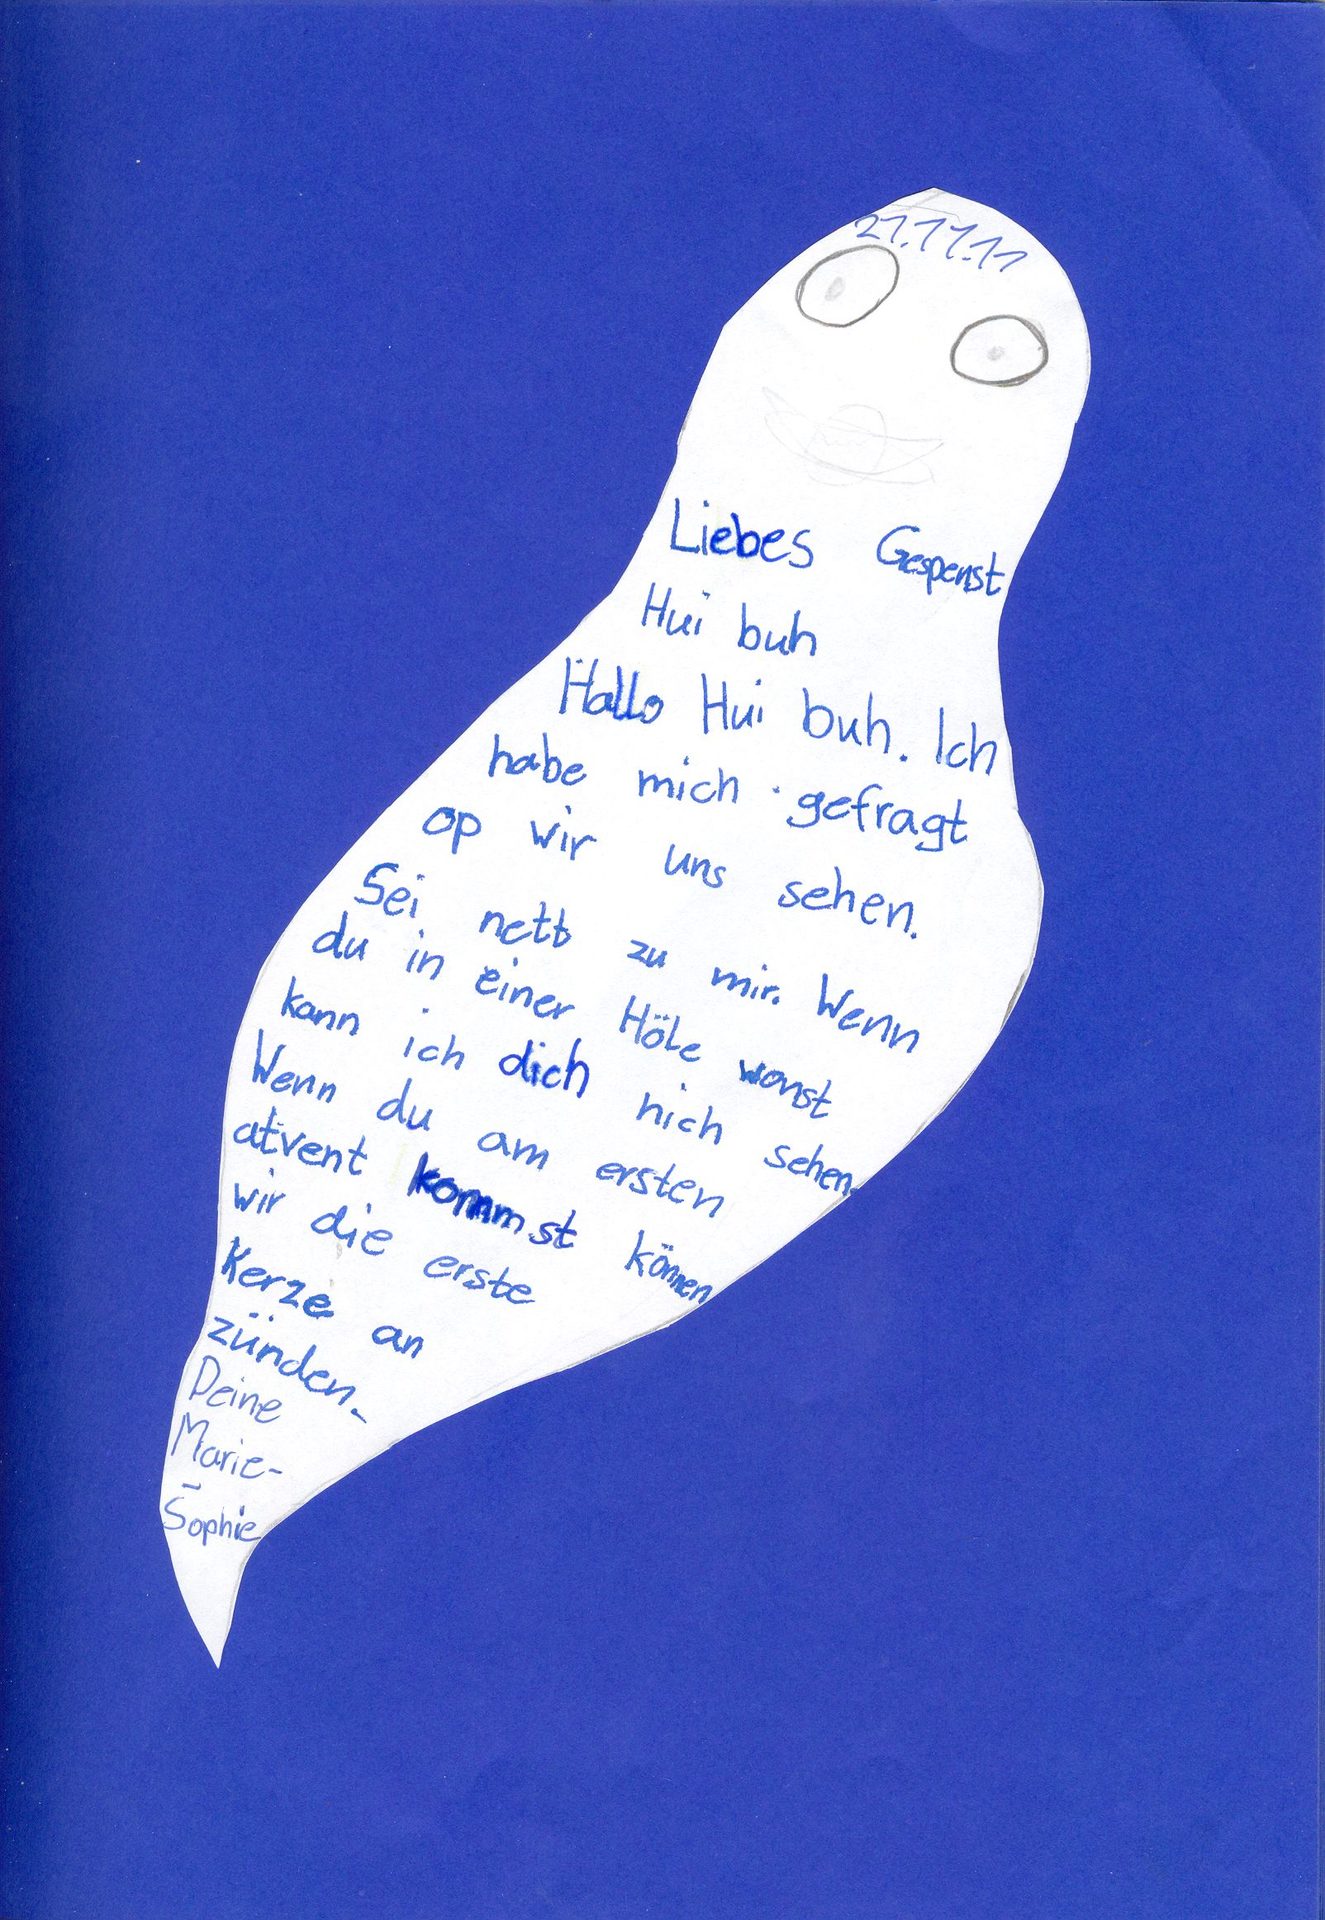 21.11.11
Liebes Gespenst
Hui buh
Hallo Hui buh. Ich
habe mich gefragt
op wir uns sehen.
Sei nett zu mir. Wenn
du in einer Höle wonst
kann ich dich nich sehen.
Wenn du am ersten
atvent kommst können
wir die erste
Kerze an
zünden.
Deine
Marie-
Sophie